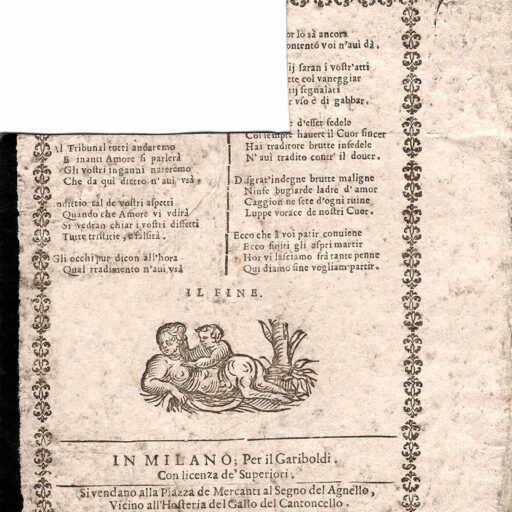 or lo sà ancora
ontento voi n'auì dà.
ij saran i vostr'atti
ete col vaneggiar
tij segnalati
r vso è di gabbar.
e d'esser fedele
Col tempre hauere il Cuor sincer
Hai traditore brutte infedele
N'auì tradito contr' il douer.
Disgrat'indegne brutte maligne
Ninfe bugiarde ladre d'amor
Caggion ne sete d'ogni ruine
Luppe vorace de nostri Cuor.
Ecco che à voi patir conuiene
Ecco finiti gli aspri martir
Hor vi lasciamo frà tante penne
Qui diamo fine vogliam partir.
Al Tribunal tutti andaremo
E inanti Amore si parlerà
Gli vostri inganni nareremo
Che da qui dietro n'auì vsà.
inditio tal de vostri aspetti
Quando che Amore vi vdirà
Si vedran chiar i vostri difetti
Tutte tristitie, e falsità.
Gli occhi pur dicon all'hora
Qual tradimento n'auì vsà
IL FINE.
IN MILANO, Per il Gariboldi.
Con licenza de' Superiori.
Si vendano alla Piazza de Mercanti al Segno del Agnello,
Vicino all'Hosteria del Gallo del Cantoncello.